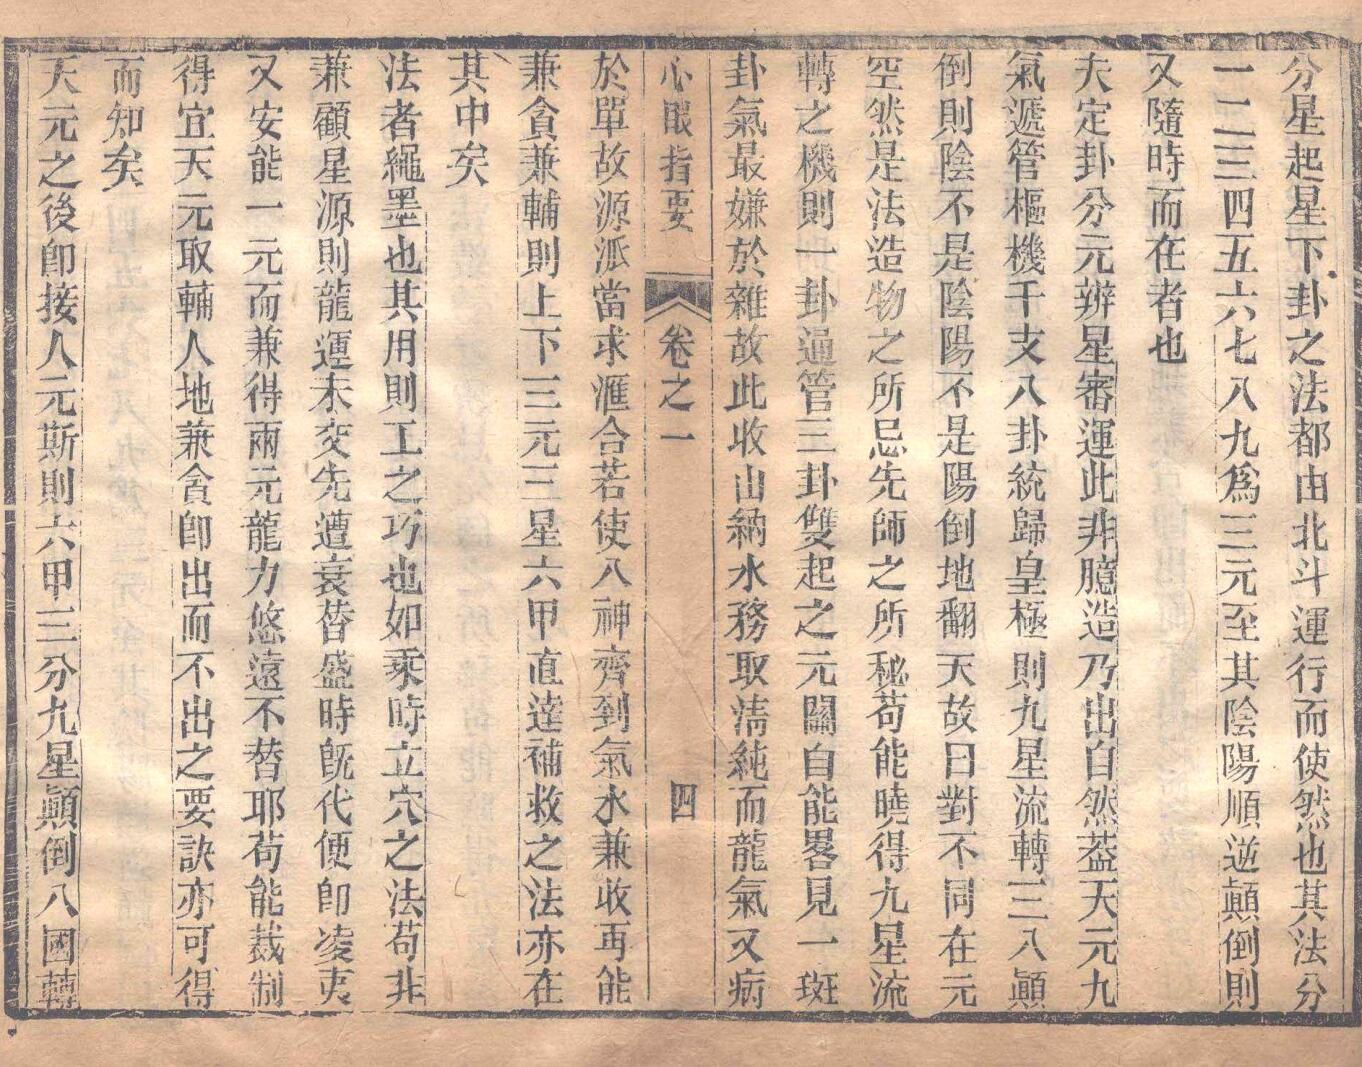 分星起星下卦之法都由北斗運行而使然也其法分
一二三四五六七八九爲三元至其陰陽順逆顛倒則
又隨時而在者也
夫定卦分元辨星審運此非臆造乃出自然葢天元九
氣遞管樞機干支八卦統歸皇極則九星流轉三八顚
倒則陰不是陰陽不是陽倒地翻天故曰對不同在元
空然是法造物之所忌先師之所秘苟能曉得九星流
轉之機則一卦通管三卦雙起之元關自能畧見一斑
卦氣最嫌於雜故此收山納水務取淸純而龍氣又病
心眼指要
卷之一
四
於單故源派當求滙合若使八神齊到氣水兼收再能
兼貪兼輔則上下三元三星六甲直達補救之法亦在
其中矣
法者繩墨也其用則工之巧也如乘時立穴之法苟非
兼顧星源則龍運未交先遭衰替盛時旣代便卽凌夷
又安能一元而兼得兩元龍力悠遠不替耶苟能裁制
得宜天元取輔人地兼貪卽出而不出之要訣亦可得
而知矣
天元之後卽接人元斯則六甲三分九星顚倒八國轉